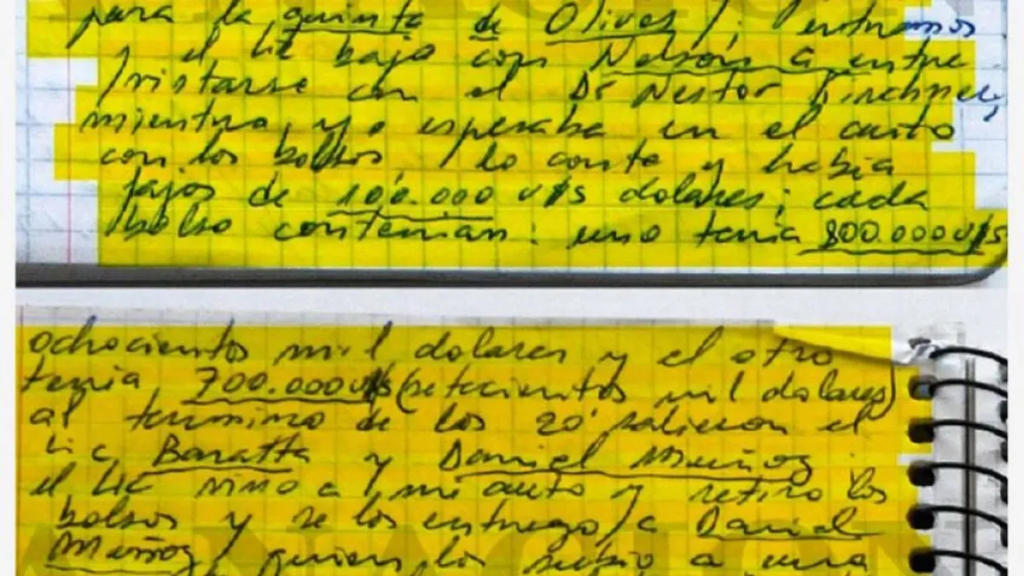 para la quinta de Olivos, entramos
y el lic bajo con Nelson G entre
con el Dr Nestor Kirchner,
mientras yo esperaba en el auto
con los bolsos, lo conte y habia
fajos de 100.000 U$S dolares; cada
bolso contenian: uno tenia 800.000 U$S
ochocientos mil dolares y el otro
tenia 700.000 U$S (setecientos mil dolares)
al termino de los 20' salieron el
Lic Baratta y Daniel Muñoz
el Lic vino a mi auto y retiro los
bolsos y se los entrego a Daniel
Muñoz, quien los subio a una
LA NACION